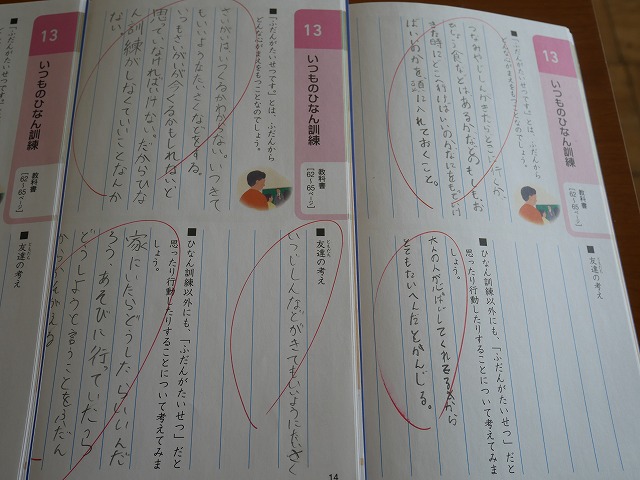 13
いつものひなん訓練
教科書
［62〜65ページ］
■「ふだんがたいせつです。」とは、ふだんから
どんな心がまえをもつことなのでしょう。
つなみやじしんがきたらどこに行くか
きた時にどこへ行けばいいのか
ばいいのかを頭に入れておくこと。
■友達の考え
ともだち
■ひなん訓練以外にも、「ふだんがたいせつ」だと
思ったり行動したりすることについて考えてみま
しょう。
大人の人が心ぱいしてくれてるから
とてもたいへんだとかんじる。
13
いつものひなん訓練
教科書
［62〜65ページ］
■「ふだんがたいせつです。」とは、ふだんから
どんな心がまえをもつことなのでしょう。
さいがいはいつくるかわからない。いつきて
もいいようなたいさくなどをする。
いつもさいがいが今くるかもしれないと
思っていなければいけない。だからひな
ん訓練がしなくていいことなんか
ない
■友達の考え
ともだち
いつじしんなどがきてもいいようにたいさく
■ひなん訓練以外にも、「ふだんがたいせつ」だと
思ったり行動したりすることについて考えてみま
しょう。
家にいたらどうしたらいいんだ
ろう、あそびに行っていたら
どうしようと言うことをふだん
から
14
13
■友達の考え